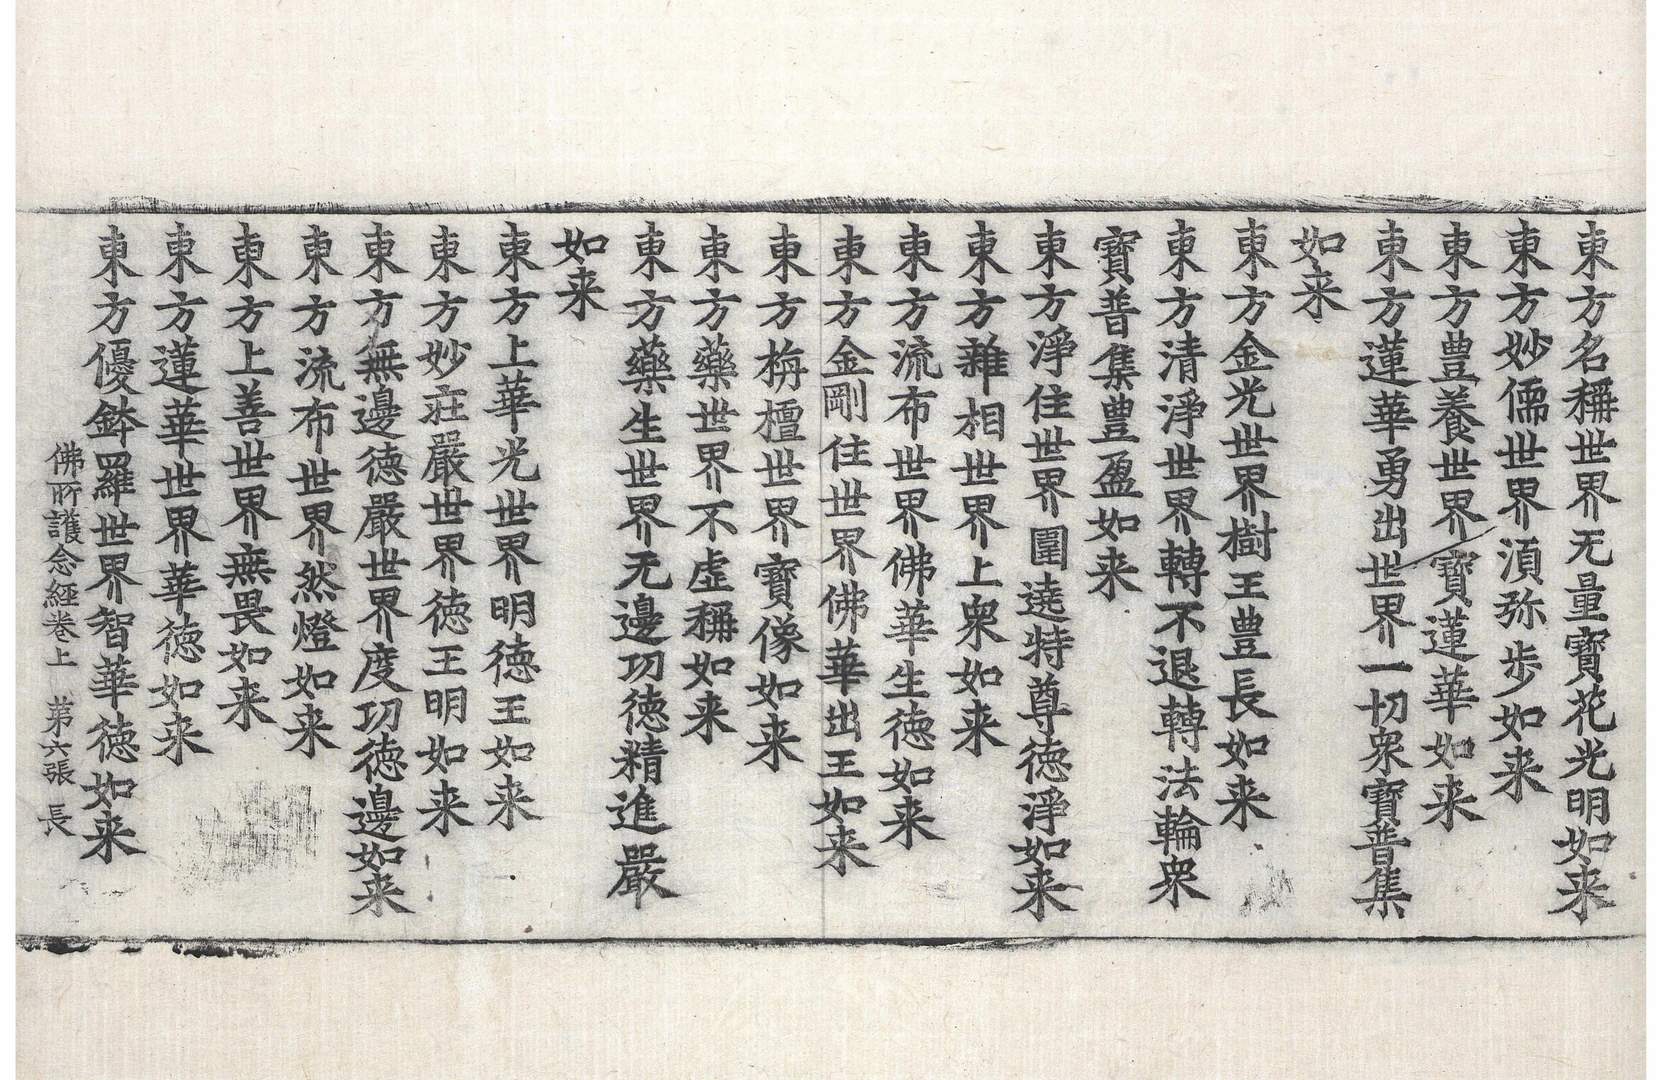 東方名稱世界无量寶花光明如来
東方妙儒世界湏弥步如来
東方豊養世界寶蓮華如来
東方蓮華勇出世界一切衆寶普集
如来
東方金光世界樹王豊長如来
東方清淨世界轉不退轉法輪衆
寶普集豊盈如来
東方淨住世界圍遶特尊德淨如来
東方雜相世界上衆如来
東方流布世界佛華生德如来
東方金剛住世界佛華出王如来
東方栴檀世界寶像如来
東方藥世界不虛稱如来
東方藥生世界无邊功德精進嚴
如来
東方上華光世界明德王如来
東方妙莊嚴世界德王明如来
東方無邊德嚴世界度功德邊如来
東方流布世界然燈如来
東方上善世界無畏如来
東方蓮華世界華德如来
東方優鉢羅世界智華德如来
佛所護念經卷上 苐六張 長